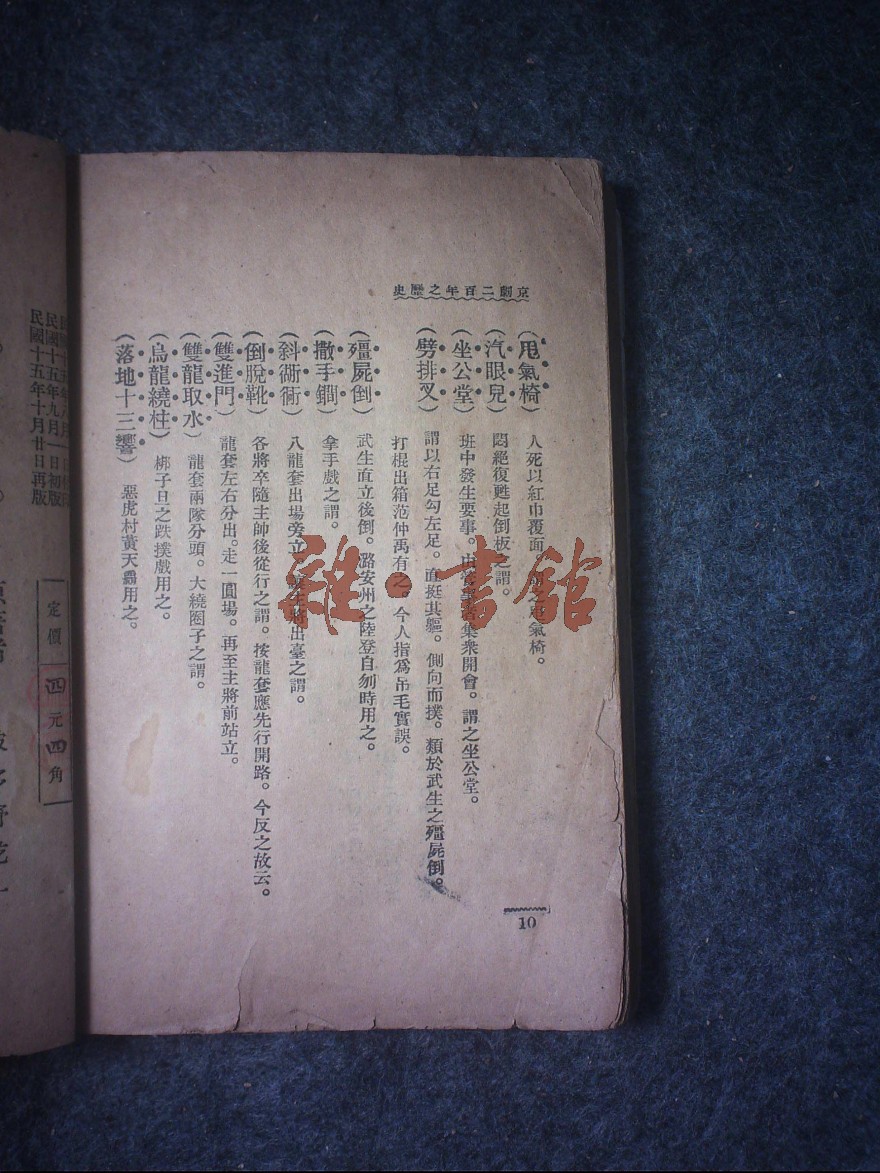 京劇二百年之歷史
(甩氣椅) 人死以紅巾覆面。氣椅。
(汽眼兒) 悶絕復甦起倒板之謂。
(坐公堂) 班中發生要事。集衆開會。謂之坐公堂。
(劈排叉) 謂以右足勾左足。直挺其軀。側向而撲。類於武生之殭屍倒。
打棍出箱范仲禹有之。今人指爲吊毛實誤。
(殭屍倒) 武生直立後倒。潞安州之陸登自刎時用之。
(撒手鐧) 拿手戲之謂。
(斜衚衕) 八龍套出場旁立。將出臺之謂。
(倒脫靴) 各將卒隨主帥後從行之謂。按龍套應先行開路。今反之故云。
(雙進門) 龍套左右分出。走一圓場。再至主將前站立。
(雙龍取水) 龍套兩隊分頭。大繞圈子之謂。
(烏龍繞柱) 梆子旦之跌撲戲用之。
(落地十三響) 惡虎村黃天霸用之。
10
民國十五年九月一日初版
民國十五年十月廿日再版
定價 四元四角
雜·書館